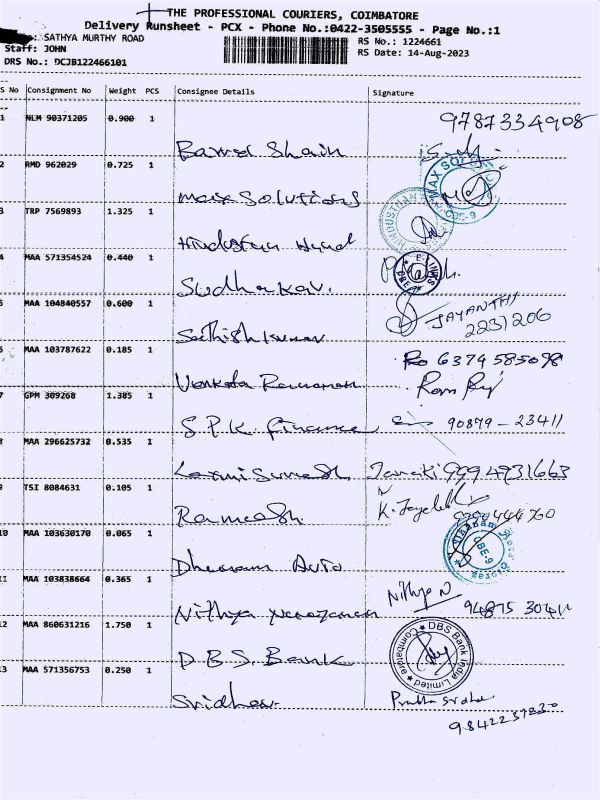 THE PROFESSIONAL COURIERS, COIMBATORE
Delivery Runsheet - PCX - Phone No.:0422-3505555 - Page No.:1
: SATHYA MURTHY ROAD
RS No.: 1224661
Staff: JOHN
RS Date: 14-Aug-2023
DRS No.: DCJB122466101
S No Consignment No Weight PCS Consignee Details Signature
1 NLM 90371205 0.900 1
9787334908
Shain
2 RMD 962029 0.725 1
Max Solutions
MAX SOL
CBE-9
3 TRP 7569893 1.325 1
HINDUSTHAN
Hindustan
4 MAA 571354524 0.440 1
LINKS
CBE
Sudhakar.
5 MAA 104840557 0.600 1
JAYANTHI
2231206
Sathishkumar
6 MAA 103787622 0.185 1
6374585098
Venkata Ramanan
7 GPM 309268 1.385 1
S.P.K. Finance
90879-23411
8 MAA 296625732 0.535 1
Laxmi Suresh
Janaki 9994931663
9 TSI 8084631 0.105 1
Rameesh
K.
10 MAA 103630170 0.065 1
CBE-9
Auto
11 MAA 103838664 0.365 1
Nithya N
94875 30411
Nithya Narayanan
12 MAA 860631216 1.750 1
DBS Bank India Limited
Coimbatore
D.B.S. Bank
13 MAA 571356753 0.250 1
Sridhar
9842237830